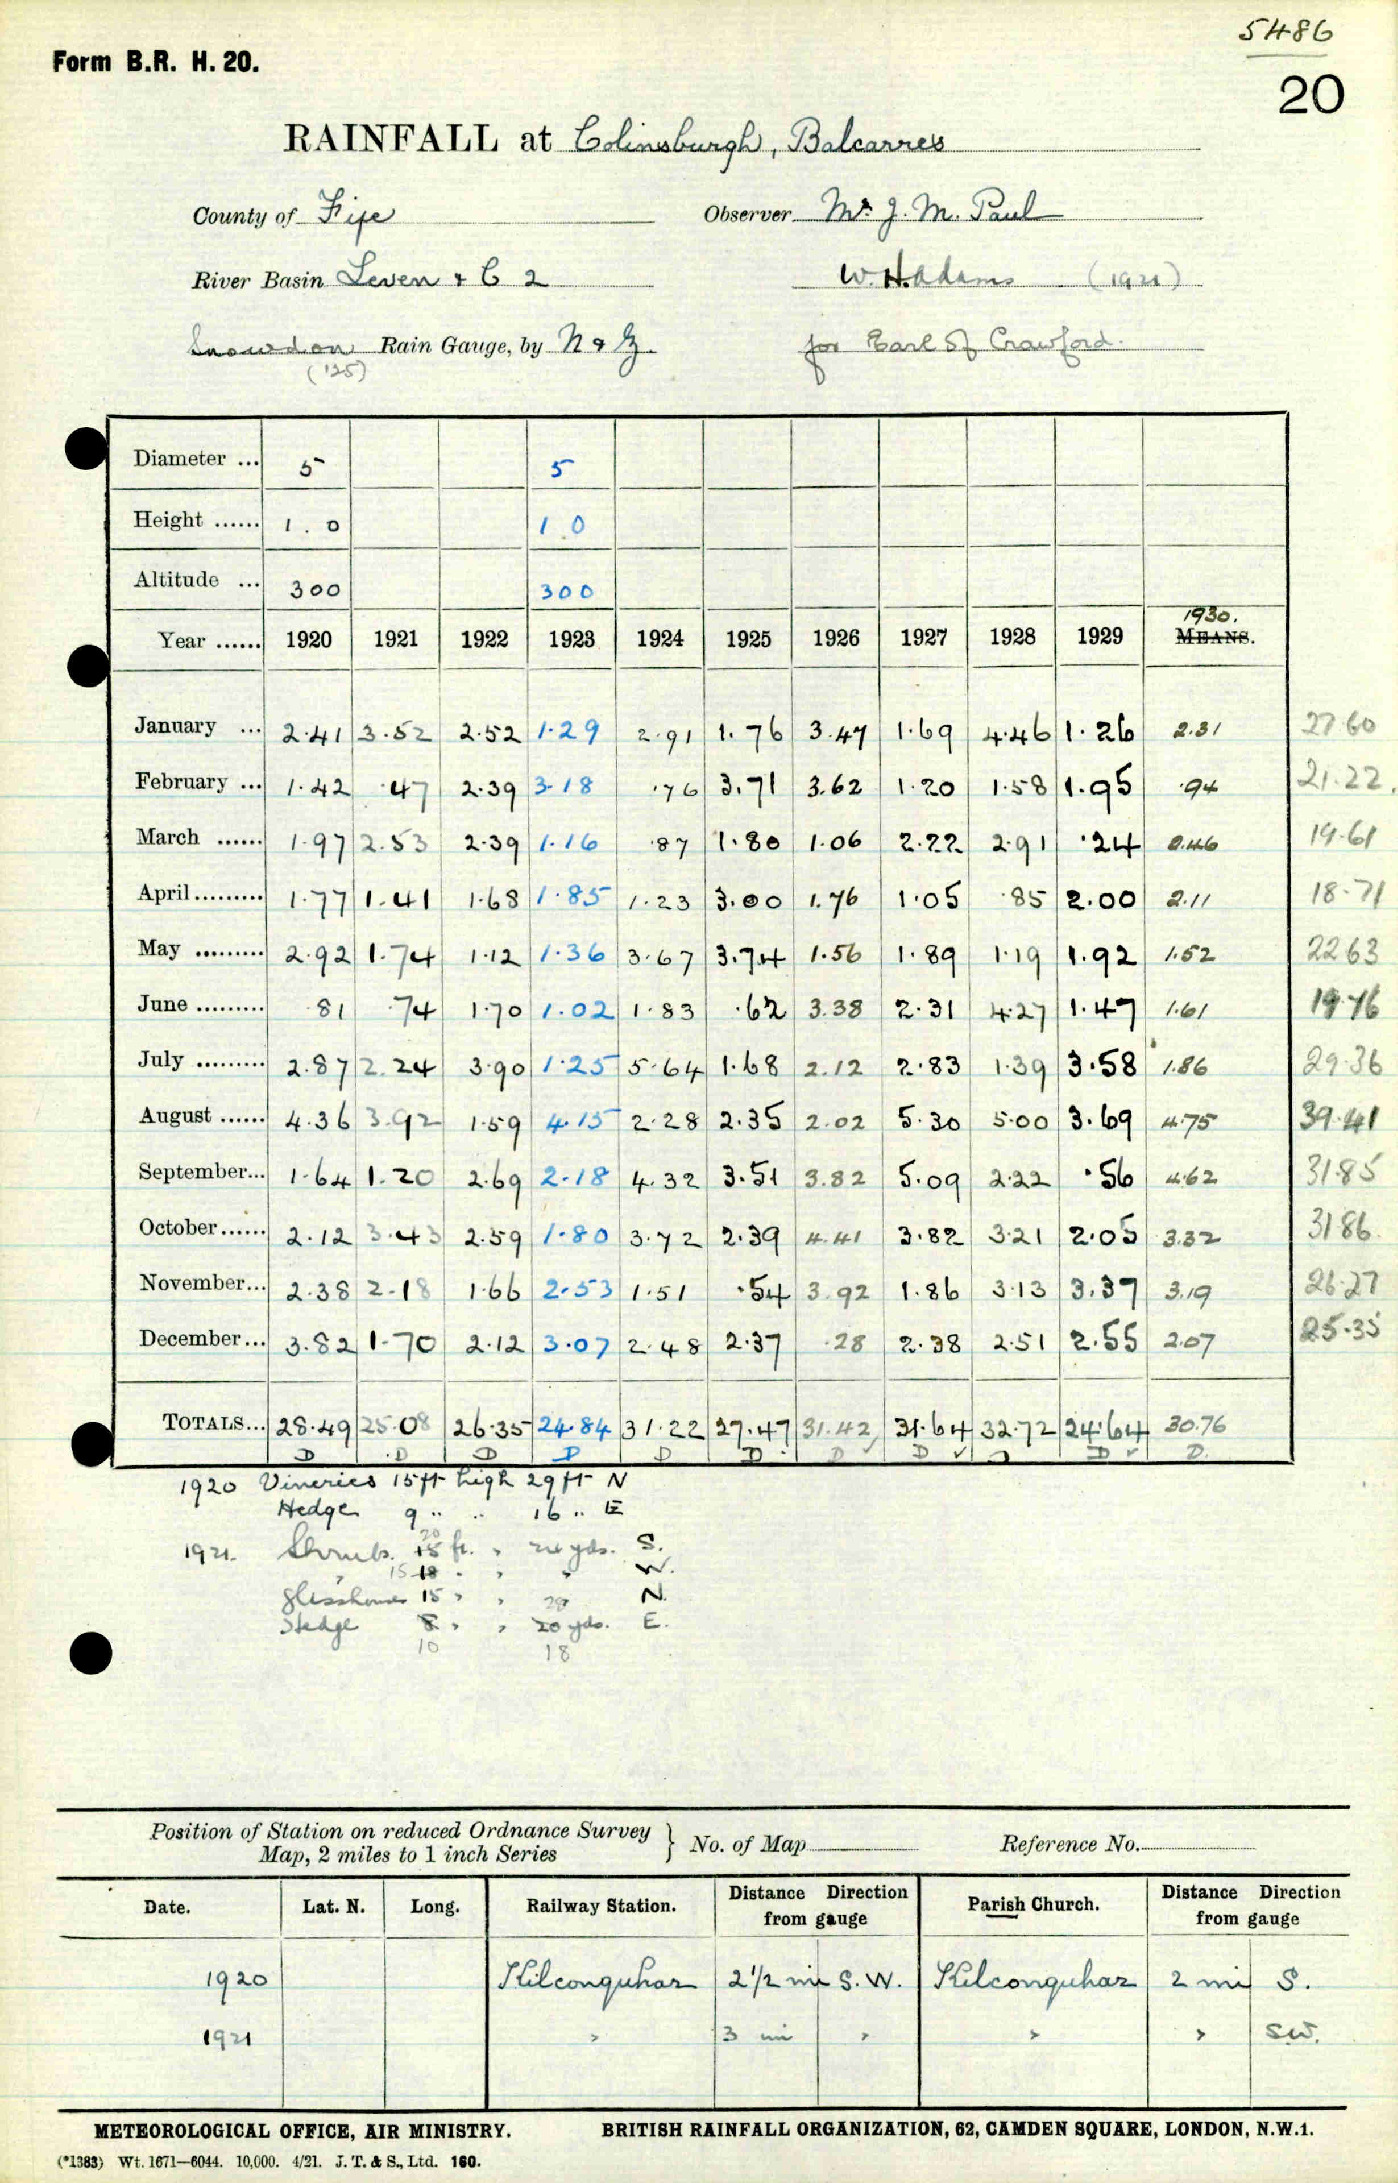 5486
Form B.R. H. 20.
20
RAINFALL at Colinsburgh, Balcarres
County of Fife Observer Mr. J. M. Paul
River Basin Leven & C 2 W. H. Adams (1921)
Snowdon Rain Gauge, by N & Z. for Earl of Crawford.
(125)
Diameter ... 5 5
Height ...... 1.0 1.0
Altitude ... 300 300
1930.
Year ...... 1920 1921 1922 1923 1924 1925 1926 1927 1928 1929 MEANS.
January ... 2.41 3.52 2.52 1.29 2.91 1.76 3.47 1.69 4.46 1.26 2.31 27.60
February ... 1.42 .47 2.39 3.18 .76 3.71 3.62 1.20 1.58 1.95 .94 21.22
March ...... 1.97 2.53 2.39 1.16 .87 1.80 1.06 2.22 2.91 .24 2.46 19.61
April ......... 1.77 1.41 1.68 1.85 1.23 3.00 1.76 1.05 .85 2.00 2.11 18.71
May ......... 2.92 1.74 1.12 1.36 3.67 3.74 1.56 1.89 1.19 1.92 1.52 22.63
June ......... .81 .74 1.70 1.02 1.83 .62 3.38 2.31 4.27 1.47 1.61 19.76
July ......... 2.87 2.24 3.90 1.25 5.64 1.68 2.12 2.83 1.39 3.58 1.86 29.36
August ...... 4.36 3.92 1.59 4.15 2.28 2.35 2.02 5.30 5.00 3.69 4.75 39.41
September... 1.64 1.20 2.69 2.18 4.32 3.51 3.82 5.09 2.22 .56 4.62 31.85
October ...... 2.12 3.43 2.59 1.80 3.72 2.39 4.41 3.82 3.21 2.05 3.32 31.86
November... 2.38 2.18 1.66 2.53 1.51 .54 3.92 1.86 3.13 3.37 3.19 26.27
December... 3.82 1.70 2.12 3.07 2.48 2.37 .28 2.38 2.51 2.55 2.07 25.35
TOTALS... 28.49 25.08 26.35 24.84 31.22 27.47 31.42 31.64 32.72 24.64 30.76
D D D D D D D D D D D
1920 Vineries 15ft high 29ft N
Hedge 9 " " 16 " E
1921. Shrubs. 15 20 ft. " 24 yds. S.
" 15 18 " " " W.
Glasshouse 15 " " 28 N
Hedge 8 " " 20 yds. E.
10 18
Position of Station on reduced Ordnance Survey
Map, 2 miles to 1 inch Series } No. of Map Reference No.
Date. Lat. N. Long. Railway Station. Distance Direction from gauge Parish Church. Distance Direction from gauge
1920 Kilconquhar 2 1/2 mi S.W. Kilconquhar 2 mi S.
1921 " 3 mi " " " SW.
METEOROLOGICAL OFFICE, AIR MINISTRY. BRITISH RAINFALL ORGANIZATION, 62, CAMDEN SQUARE, LONDON, N.W.1.
(*1383) Wt. 1671—6044. 10,000. 4/21. J. T. & S., Ltd. 160.